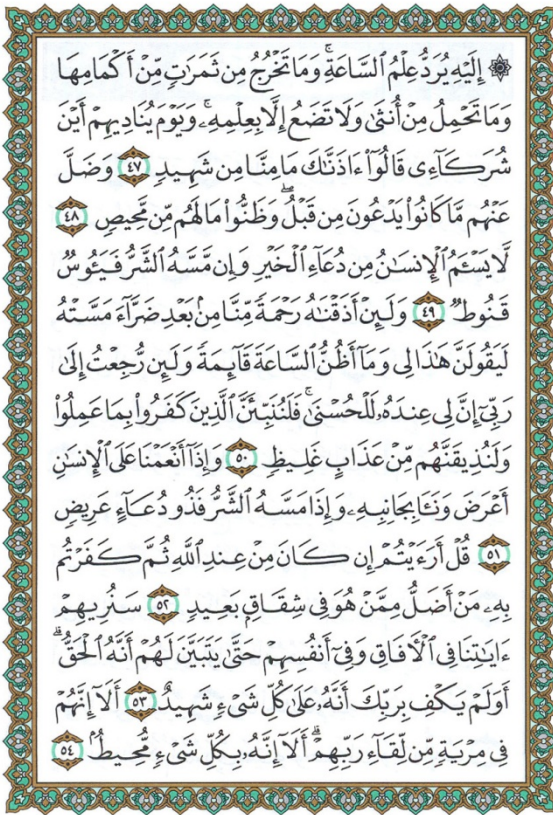 ۞ إِلَيْهِ يُرَدُّ عِلْمُ ٱلسَّاعَةِۚ وَمَا تَخْرُجُ مِن ثَمَرَٰتٍ مِّنْ أَكْمَامِهَا
وَمَا تَحْمِلُ مِنْ أُنثَىٰ وَلَا تَضَعُ إِلَّا بِعِلْمِهِۦۚ وَيَوْمَ يُنَادِيهِمْ أَيْنَ
شُرَكَآءِى قَالُوٓا۟ ءَاذَنَّٰكَ مَا مِنَّا مِن شَهِيدٍ ٤٧ وَضَلَّ
عَنْهُم مَّا كَانُوا۟ يَدْعُونَ مِن قَبْلُۖ وَظَنُّوا۟ مَا لَهُم مِّن مَّحِيصٍ ٤٨
لَّا يَسْـَٔمُ ٱلْإِنسَٰنُ مِن دُعَآءِ ٱلْخَيْرِ وَإِن مَّسَّهُ ٱلشَّرُّ فَيَـُٔوسٌ
قَنُوطٌ ٤٩ وَلَئِنْ أَذَقْنَٰهُ رَحْمَةً مِّنَّا مِنۢ بَعْدِ ضَرَّآءَ مَسَّتْهُ
لَيَقُولَنَّ هَٰذَا لِى وَمَآ أَظُنُّ ٱلسَّاعَةَ قَآئِمَةً وَلَئِن رُّجِعْتُ إِلَىٰ
رَبِّىٓ إِنَّ لِى عِندَهُۥ لَلْحُسْنَىٰۚ فَلَنُنَبِّئَنَّ ٱلَّذِينَ كَفَرُوا۟ بِمَا عَمِلُوا۟
وَلَنُذِيقَنَّهُم مِّنْ عَذَابٍ غَلِيظٍ ٥٠ وَإِذَآ أَنْعَمْنَا عَلَى ٱلْإِنسَٰنِ
أَعْرَضَ وَنَـَٔا بِجَانِبِهِۦ وَإِذَا مَسَّهُ ٱلشَّرُّ فَذُو دُعَآءٍ عَرِيضٍ
٥١ قُلْ أَرَءَيْتُمْ إِن كَانَ مِنْ عِندِ ٱللَّهِ ثُمَّ كَفَرْتُم
بِهِۦ مَنْ أَضَلُّ مِمَّنْ هُوَ فِى شِقَاقٍۭ بَعِيدٍ ٥٢ سَنُرِيهِمْ
ءَايَٰتِنَا فِى ٱلْءَافَاقِ وَفِىٓ أَنفُسِهِمْ حَتَّىٰ يَتَبَيَّنَ لَهُمْ أَنَّهُ ٱلْحَقُّۗ
أَوَلَمْ يَكْفِ بِرَبِّكَ أَنَّهُۥ عَلَىٰ كُلِّ شَىْءٍ شَهِيدٌ ٥٣ أَلَآ إِنَّهُمْ
فِى مِرْيَةٍ مِّن لِّقَآءِ رَبِّهِمْۗ أَلَآ إِنَّهُۥ بِكُلِّ شَىْءٍ مُّحِيطٌۢ ٥٤